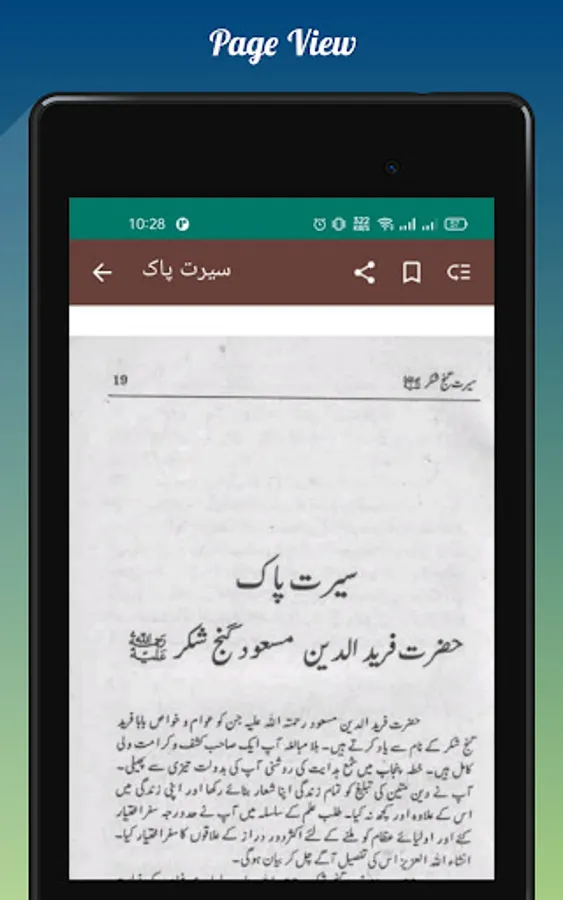 Page View
10:28
سیرت پاک
19
سیرت گنج شکر رحمۃ اللہ علیہ
سیرت پاک
حضرت فرید الدین مسعود گنج شکر رحمۃ اللہ علیہ
حضرت فرید الدین مسعود رحمتہ اللہ علیہ جن کو عوام و خواص بابا فرید
گنج شکر کے نام سے یاد کرتے ہیں۔ بلا مبالغہ آپ ایک صاحب کشف و کرامت ولی
کامل ہیں۔ خطہ پنجاب میں شمع ہدایت کی روشنی آپ کی بدولت تیزی سے پھیلی۔
آپ نے دین متین کی تبلیغ کو تمام زندگی اپنا شعار بنائے رکھا اور اپنی زندگی میں
اس کے علاوہ اور کچھ نہ کیا۔ طلب علم کے سلسلہ میں آپ نے حد درجہ سفر اختیار
کئے اور اولیائے عظام کو ملنے کے لئے اکثر دور دراز کے علاقوں کا سفر اختیار کیا۔
انشاء اللہ العزیز اس کی تفصیل آگے چل کر بیان ہوگی۔